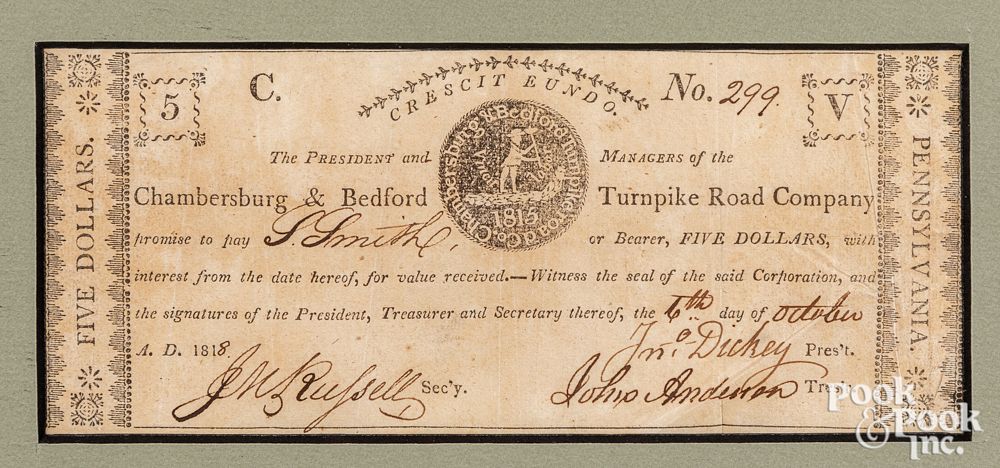 FIVE DOLLARS.
5 C. CRESCIT EUNDO. No. 299. V
The PRESIDENT and MANAGERS of the
Chambersburg & Bedford Turnpike Road Company
promise to pay S Smith, or Bearer, FIVE DOLLARS, with
interest from the date hereof, for value received.—Witness the seal of the said Corporation, and
the signatures of the President, Treasurer and Secretary thereof, the 6th day of October
A. D. 1818. Jno. Dickey Pres't.
J M Russell Sec'y. John Anderson Tres'r.
Chambersburg & Bedford Turnpike Road Co.
1815
PENNSYLVANIA.
Pook
& Pook
Inc.